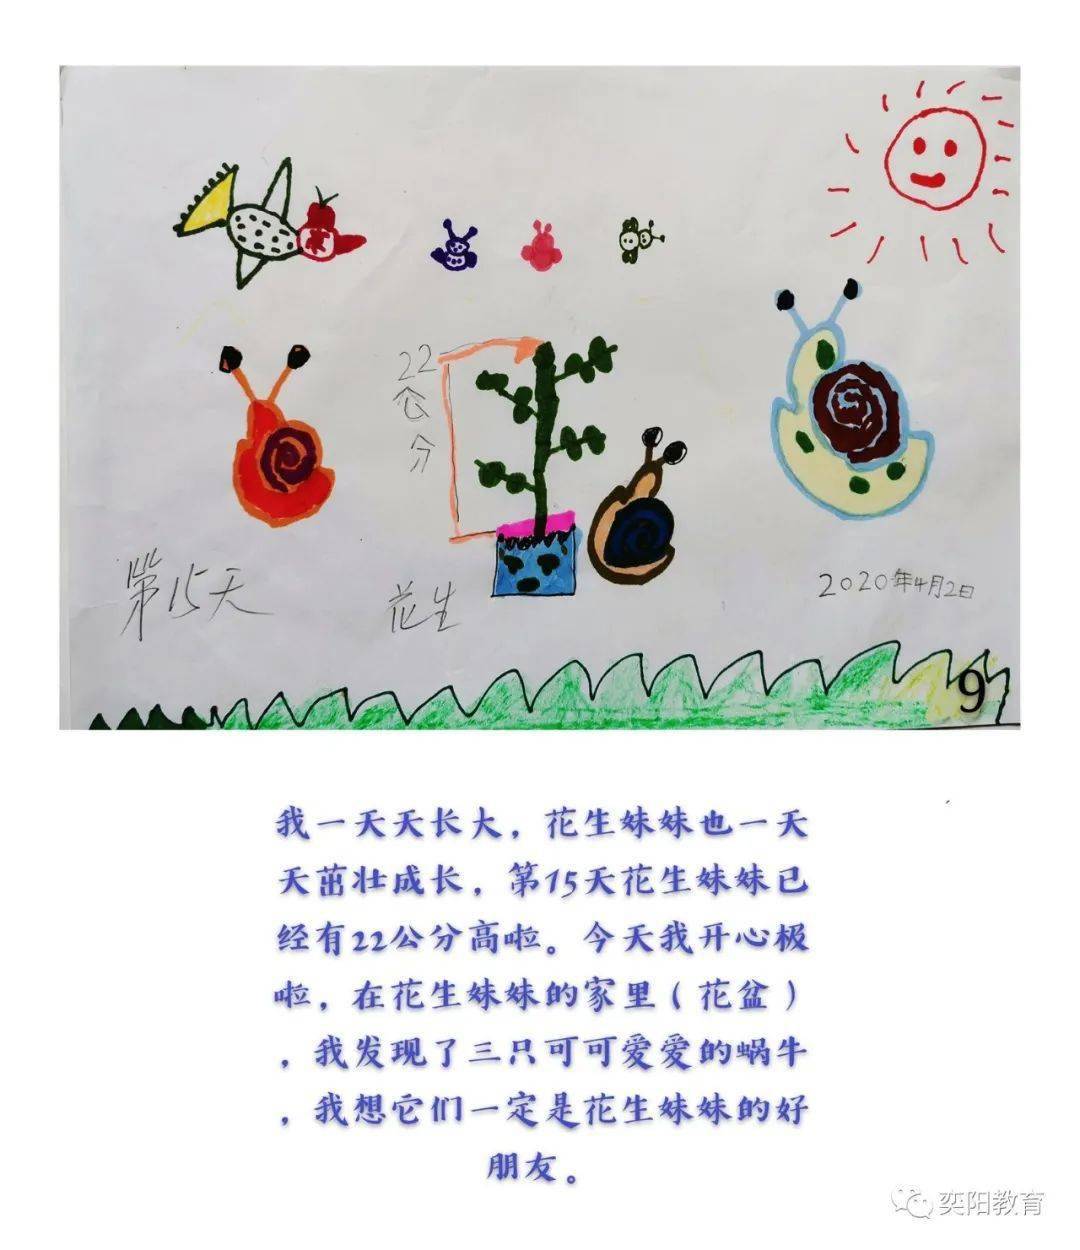 22
公
分
第15天
花生
2020年4月2日
9
我一天天长大，花生妹妹也一天
天茁壮成长，第15天花生妹妹已
经有22公分高啦。今天我开心极
啦，在花生妹妹的家里（花盆）
，我发现了三只可可爱爱的蜗牛
，我想它们一定是花生妹妹的好
朋友。
奕阳教育